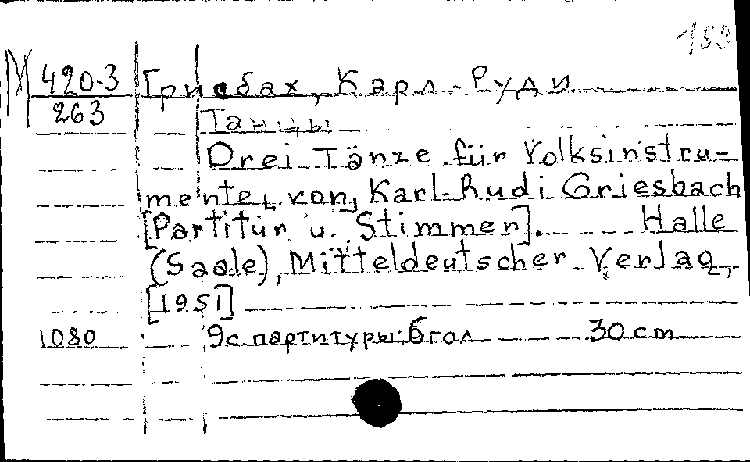 153
М 420-3 Грисбах, Карл-Руди
263 Танцы
Drei Tänze für Volksinstru-
mente, von, Karl-Rudi Griesbach
[Partitur u. Stimmen]. Halle
(Saale), Mitteldeutscher Verlag,
[1951]
1080 9с партитуры: 6гол 30 cm